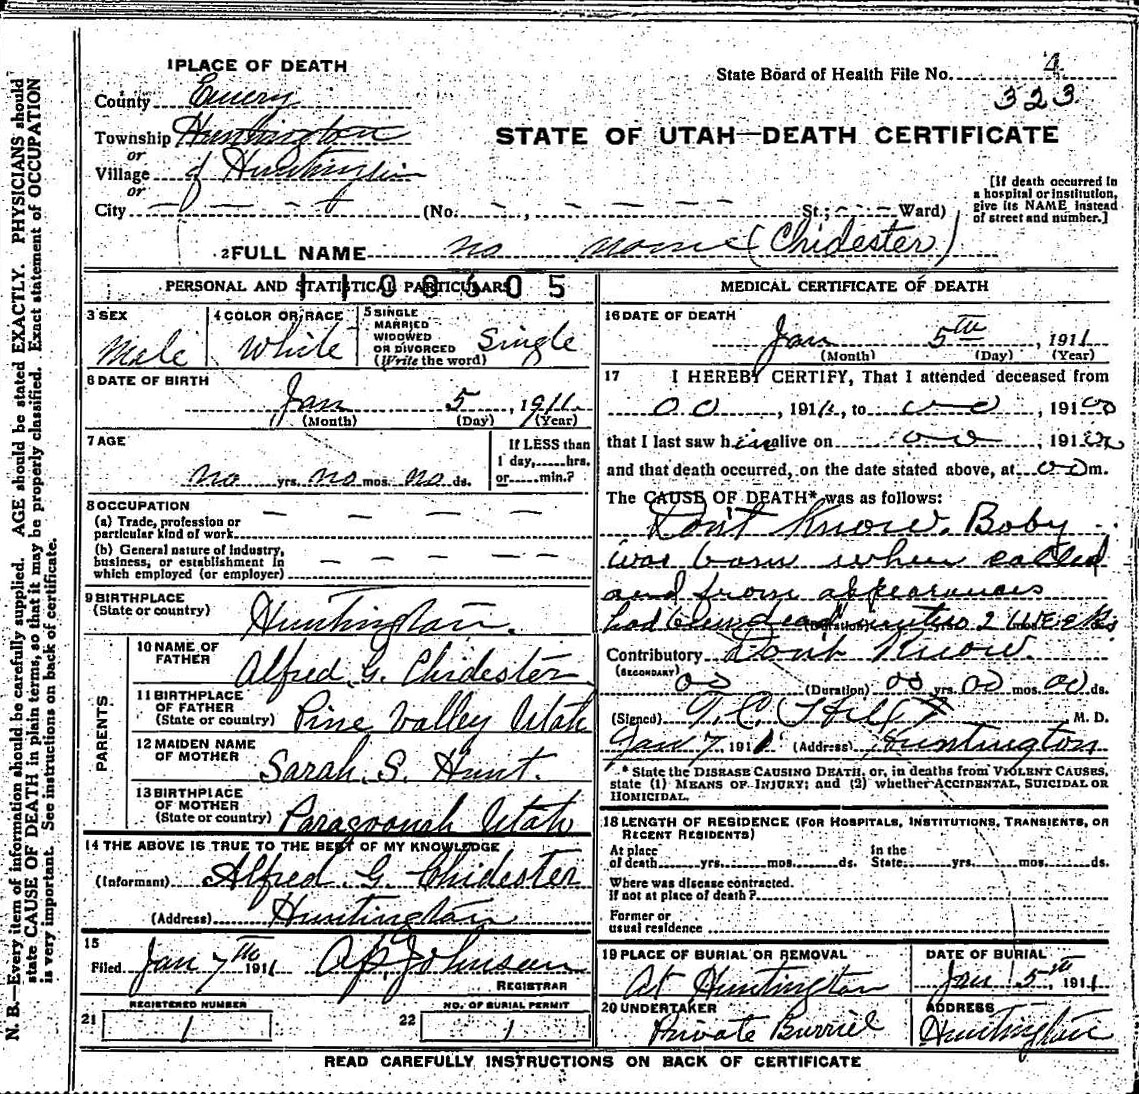 1 PLACE OF DEATH
County Emery
Township Huntington
or
Village of Huntington
or
City — — — — (No. — , — — — — St.; - - - Ward)
State Board of Health File No. 4
323
STATE OF UTAH—DEATH CERTIFICATE
[If death occurred in
a hospital or institution,
give its NAME instead
of street and number.]
2 FULL NAME no name (Chidester)
PERSONAL AND STATISTICAL PARTICULARS
3 SEX
Male
4 COLOR OR RACE
White
5 SINGLE
MARRIED
WIDOWED
OR DIVORCED
(Write the word)
Single
6 DATE OF BIRTH
Jan 5, 1911.
(Month) (Day) (Year)
7 AGE
no yrs. no mos. no ds.
If LESS than
1 day,......hrs.
or......min.?
8 OCCUPATION
(a) Trade, profession or
particular kind of work
(b) General nature of industry,
business, or establishment in
which employed (or employer)
9 BIRTHPLACE
(State or country)
Huntington.
PARENTS.
10 NAME OF
FATHER
Alfred. G. Chidester
11 BIRTHPLACE
OF FATHER
(State or country)
Pine Valley Utah
12 MAIDEN NAME
OF MOTHER
Sarah. S. Hunt.
13 BIRTHPLACE
OF MOTHER
(State or country)
Paragoonah Utah
14 THE ABOVE IS TRUE TO THE BEST OF MY KNOWLEDGE
(Informant) Alfred G. Chidester
(Address) Huntington
15
Filed Jan 7th 1911 Johnson
REGISTRAR
REGISTERED NUMBER
21 1
NO. OF BURIAL PERMIT
22 1
MEDICAL CERTIFICATE OF DEATH
16 DATE OF DEATH
Jan 5th, 1911
(Month) (Day) (Year)
17 I HEREBY CERTIFY, That I attended deceased from
oo, 191, to oo, 191
that I last saw him alive on oo, 191
and that death occurred, on the date stated above, at oo m.
The CAUSE OF DEATH* was as follows:
Dont Know. Baby
was born when called
and from appearances
had been dead 2 weeks
Contributory Dont Know.
(SECONDARY)
oo (Duration) oo yrs. oo mos. oo ds.
(Signed) T. C. Hill M. D.
Jan 7, 1911 (Address) Huntington
* State the DISEASE CAUSING DEATH, or, in deaths from VIOLENT CAUSES,
state (1) MEANS OF INJURY; and (2) whether ACCIDENTAL, SUICIDAL OR
HOMICIDAL.
18 LENGTH OF RESIDENCE (FOR HOSPITALS, INSTITUTIONS, TRANSIENTS, OR
RECENT RESIDENTS)
At place In the
of death......yrs......mos......ds. State:......yrs......mos......ds.
Where was disease contracted.
if not at place of death?
Former or
usual residence
19 PLACE OF BURIAL OR REMOVAL
At Huntington
DATE OF BURIAL
Jan 5th, 1911
20 UNDERTAKER
Private Burriel
ADDRESS
Huntington
READ CAREFULLY INSTRUCTIONS ON BACK OF CERTIFICATE
N. B.—Every item of information should be carefully supplied. AGE should be stated EXACTLY. PHYSICIANS should
state CAUSE OF DEATH in plain terms, so that it may be properly classified. Exact statement of OCCUPATION
is very important. See instructions on back of certificate.